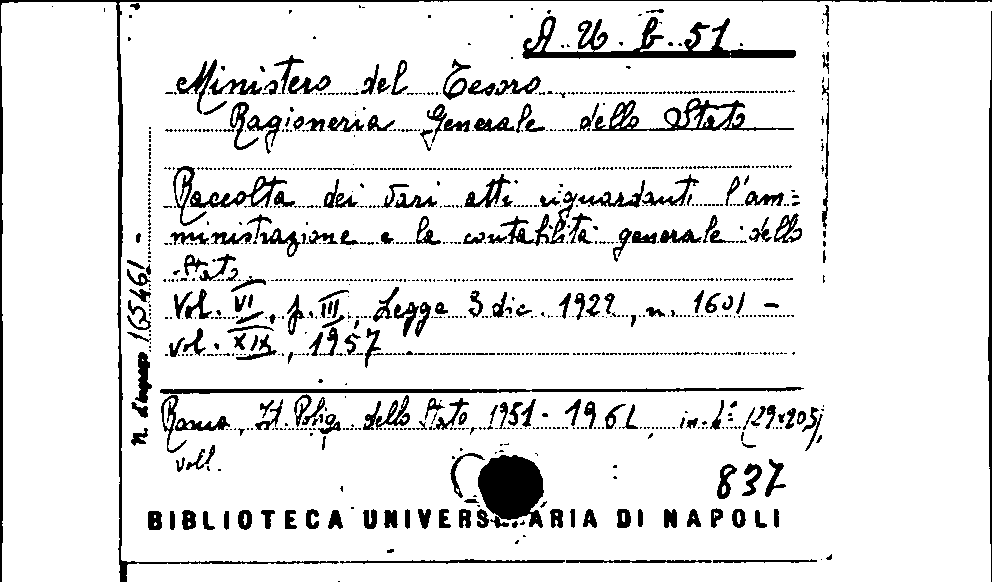 A. U. b. 51
Ministero del Tesoro.
Ragioneria Generale dello Stato
Raccolta dei vari atti riguardanti l'am=
ministrazione e la contabilità generale dello
Stato.
Vol. VI, p. III, Legge 3 dic. 1922, n. 1601 -
vol. XIX, 1957.
N. d'ingresso 165461
Roma, Ist. Polig. dello Stato, 1951-1961, in-4° (29x20,5),
voll.
837
BIBLIOTECA UNIVERSITARIA DI NAPOLI